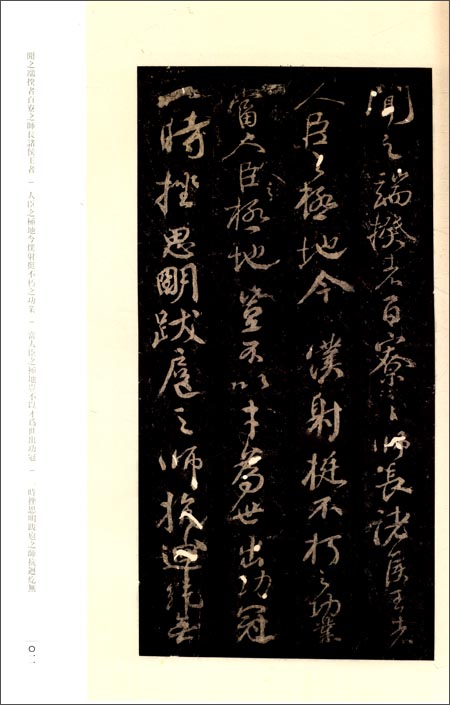 聞之端揆者百寮之師長諸侯王者
人臣之極地今僕射挺不朽之功業
當人臣之極地豈不以才為世出功冠
一時挫思明跋扈之師抗迴紇無
聞之端揆者百寮之師長諸侯王者｜人臣之極地今僕射挺不朽之功業｜當人臣之極地豈不以才爲世出功冠｜一時挫思明跋扈之師抗迴紇無